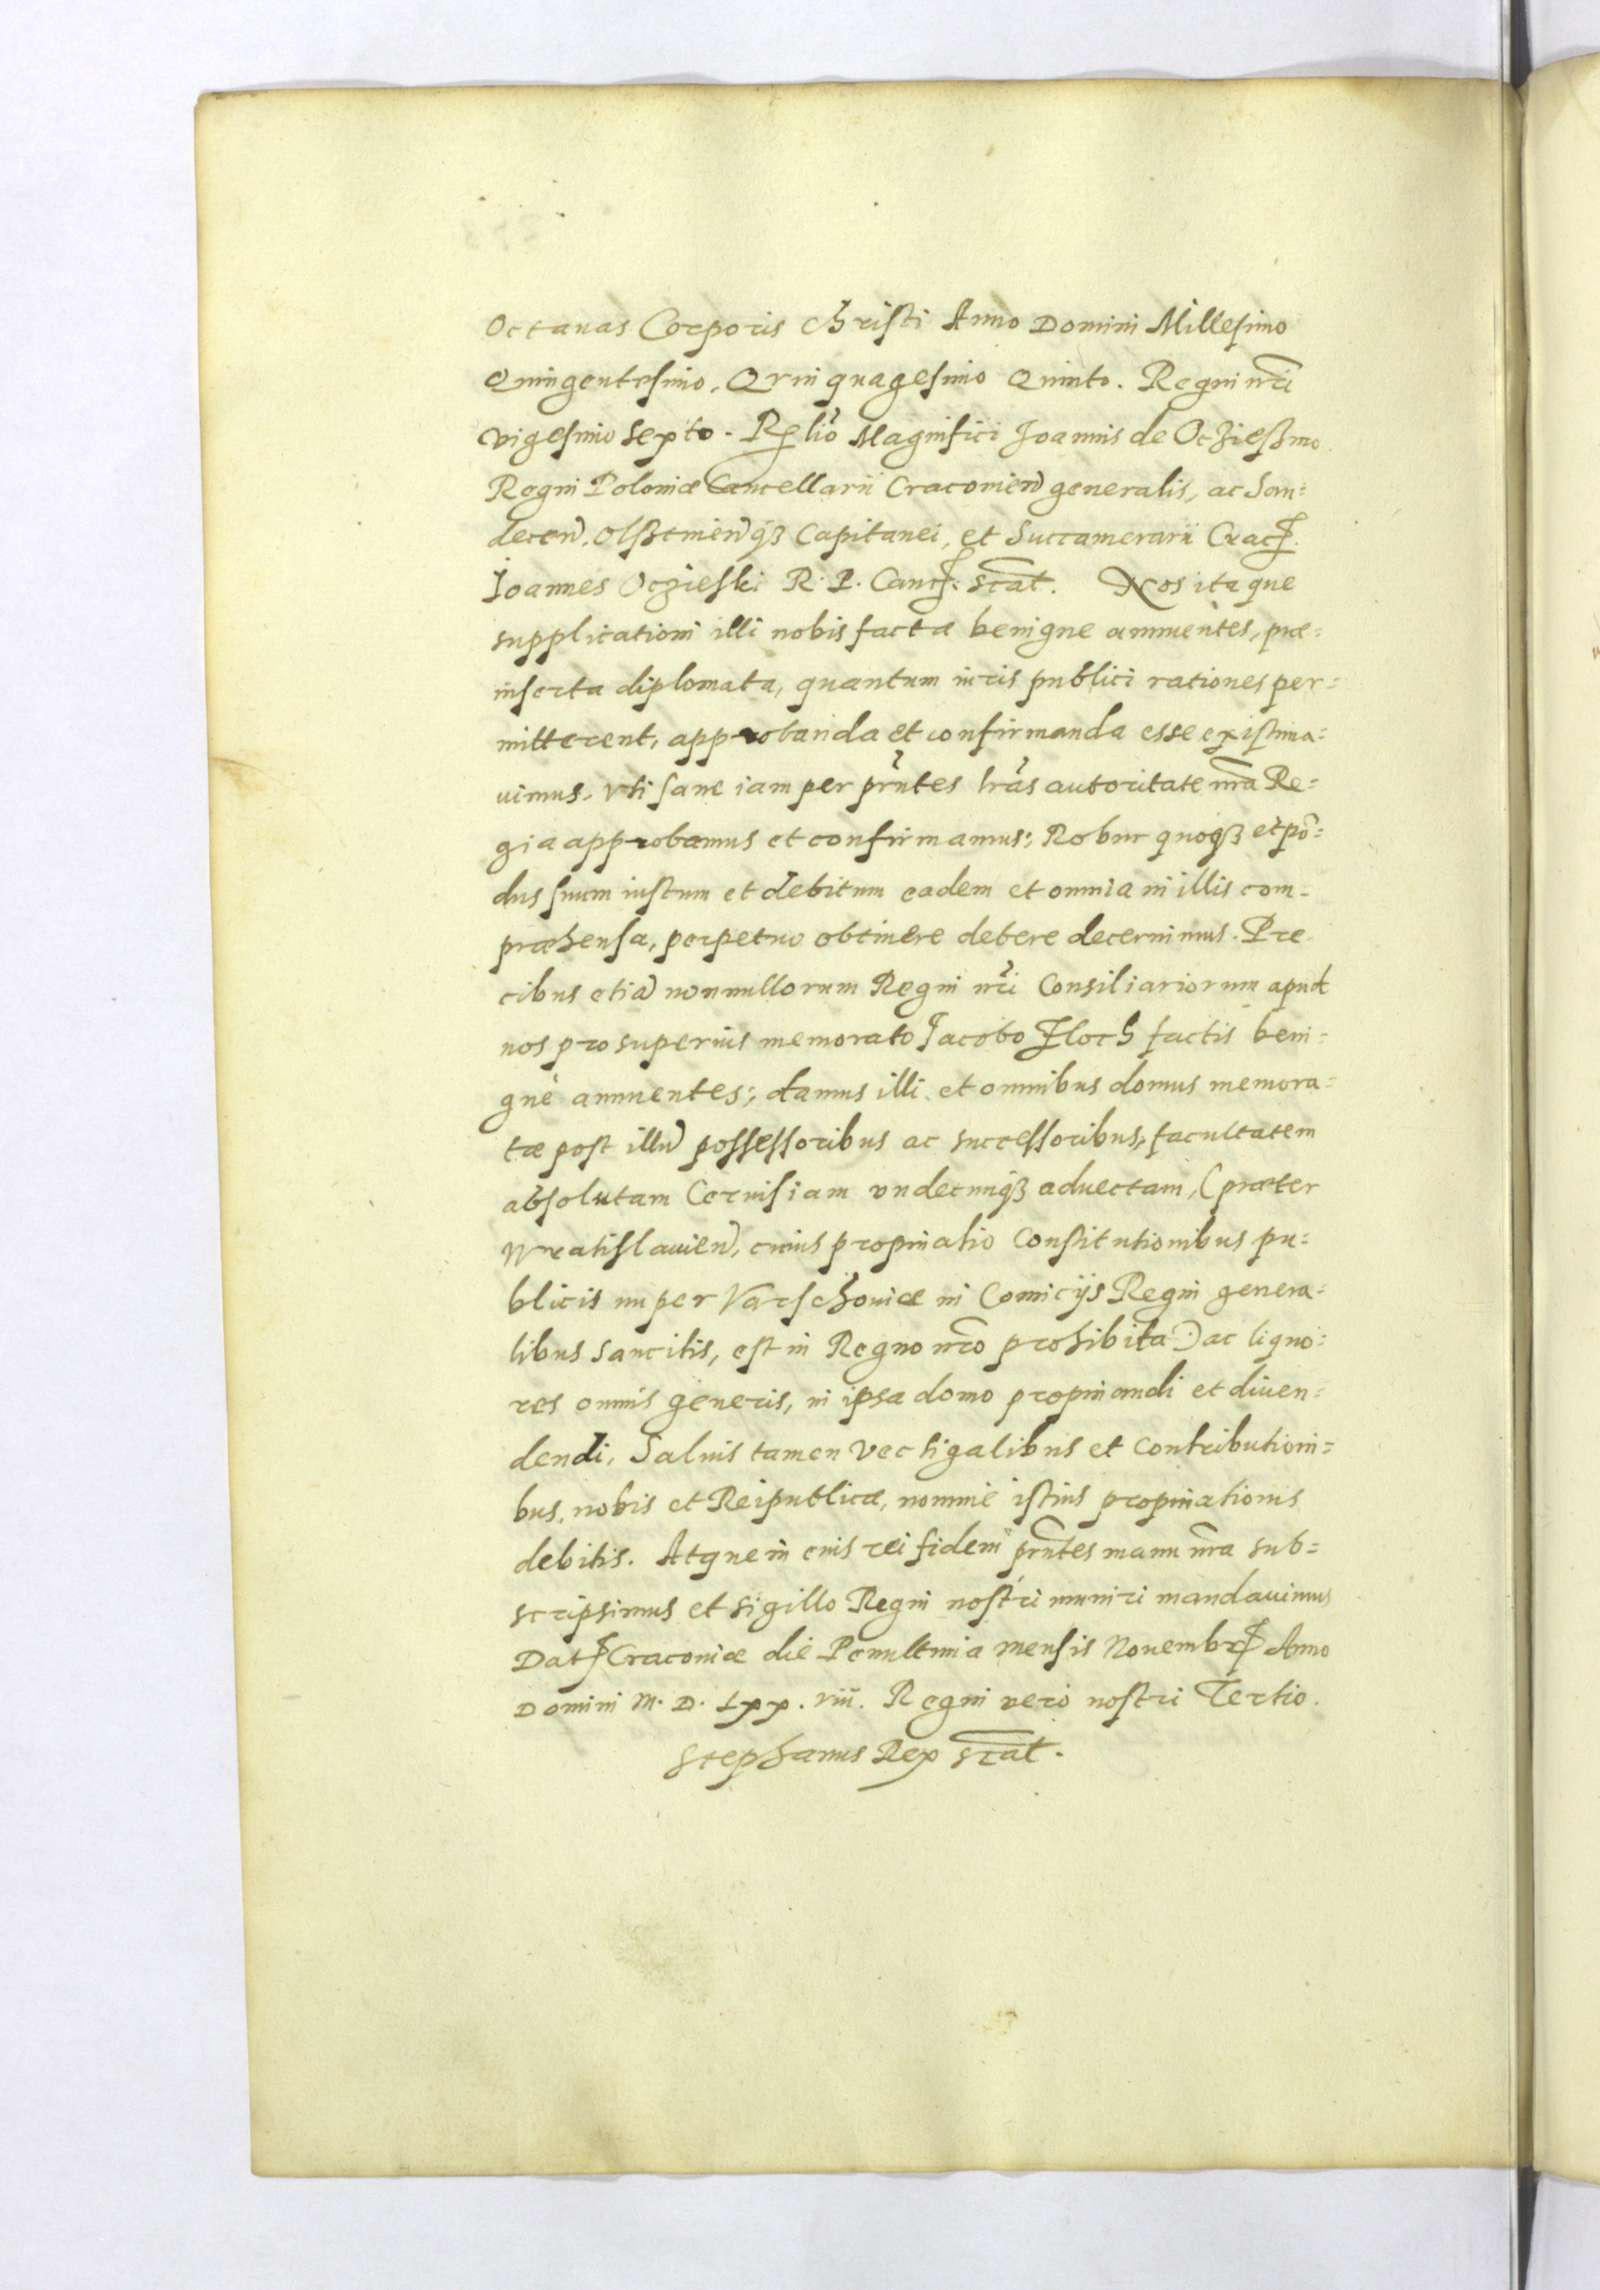 Octauas Corporis Christi Anno Domini Millesimo
Quingentesimo, Qvinquagesimo Quinto. Regni nrĩ
vigesimo sexto. Relio Magnifici Joannis de Oczießino
Regni Poloniæ Cancellarii Cracouien generalis, ac San=
decen, Olßtinenqȝ Capitanei, et Succamerarii Crac.
Joannes Oczieski R. P. Canc. scãt. Nos itaque
supplicationi illi nobis facta benigne annuentes, præ=
inserta diplomata, quantum iuris publici rationes per=
mitterent, approbanda et confirmanda esse existima=
uimus, vti sane iam per prñtes lrãs autoritate nrã Re=
gia approbamus et confirmamus; Robur quoqȝ et põ=
dus suum iustum et debitum eadem et omnia in illis com=
præhensa, perpetuo obtinere debere decernimus. Pre
cibus etiã nonnullorum Regni nrĩ Consiliariorum apud
nos pro superius memorato Jacobo Floch factis beni=
gnè annuentes; damus illi et omnibus domus memora=
tæ post illũ possessoribus ac successoribus, facultatem
absolutam Ceruisiam vndecunqȝ aduectam, (præter
Wratislauien, cuius propinatio Constitutionibus pu=
blicis nuper Varschouiæ in Comicijs Regni genera=
libus sancitis, est in Regno nrõ prohibita) ac liquo=
res omnis generis, in ipsa domo propinandi et diuen=
dendi, Saluis tamen vectigalibus et contributioni=
bus, nobis et Reipublicæ, nomine istius propinationis
debitis. Atque in cuis rei fidem prñtes manu nrã sub=
scripsimus et sigillo Regni nostri muniri mandauimus
Dat Cracouiæ die Penultima mensis Nouembr Anno
Domini M. D. Lxx. viii. Regni vero nostri Tertio.
Stephanus Rex scãt.